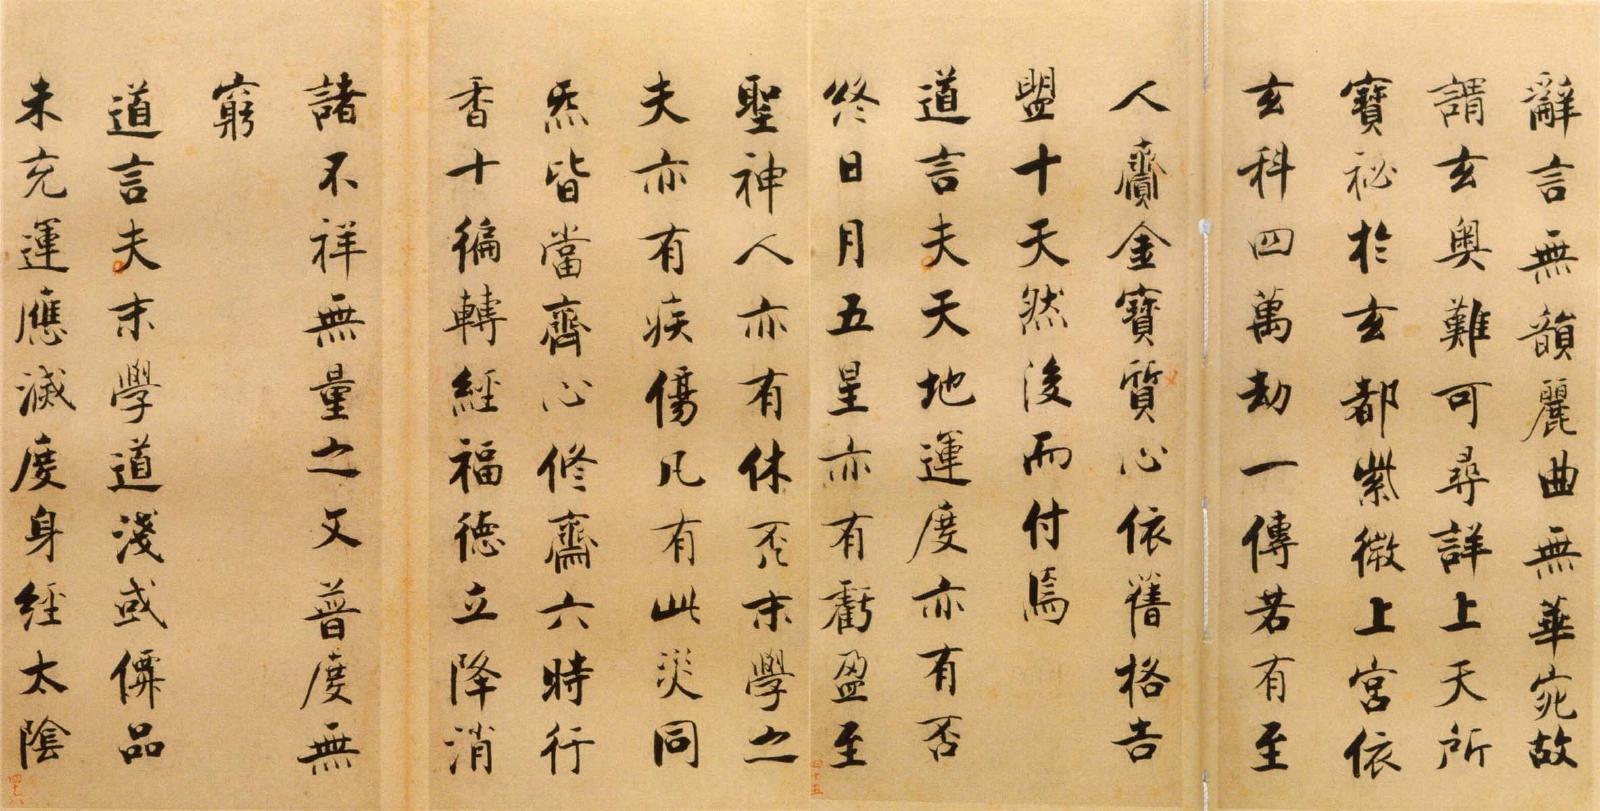 辭言無韻麗曲無華宛故
謂玄奧難可尋詳上天所
寶祕於玄都紫微上宮依
玄科四萬劫一傳若有至
人齎金寶質心依舊格告
盟十天然後而付焉
道言夫天地運度亦有否
終日月五星亦有虧盈至
聖神人亦有休否末學之
夫亦有疾傷凡有此災同
炁皆當齊心修齋六時行
香十徧轉經福德立降消
諸不祥無量之文普度無
窮
道言夫末學道淺或僊品
未充運應滅度身經太陰
四十五
四十六